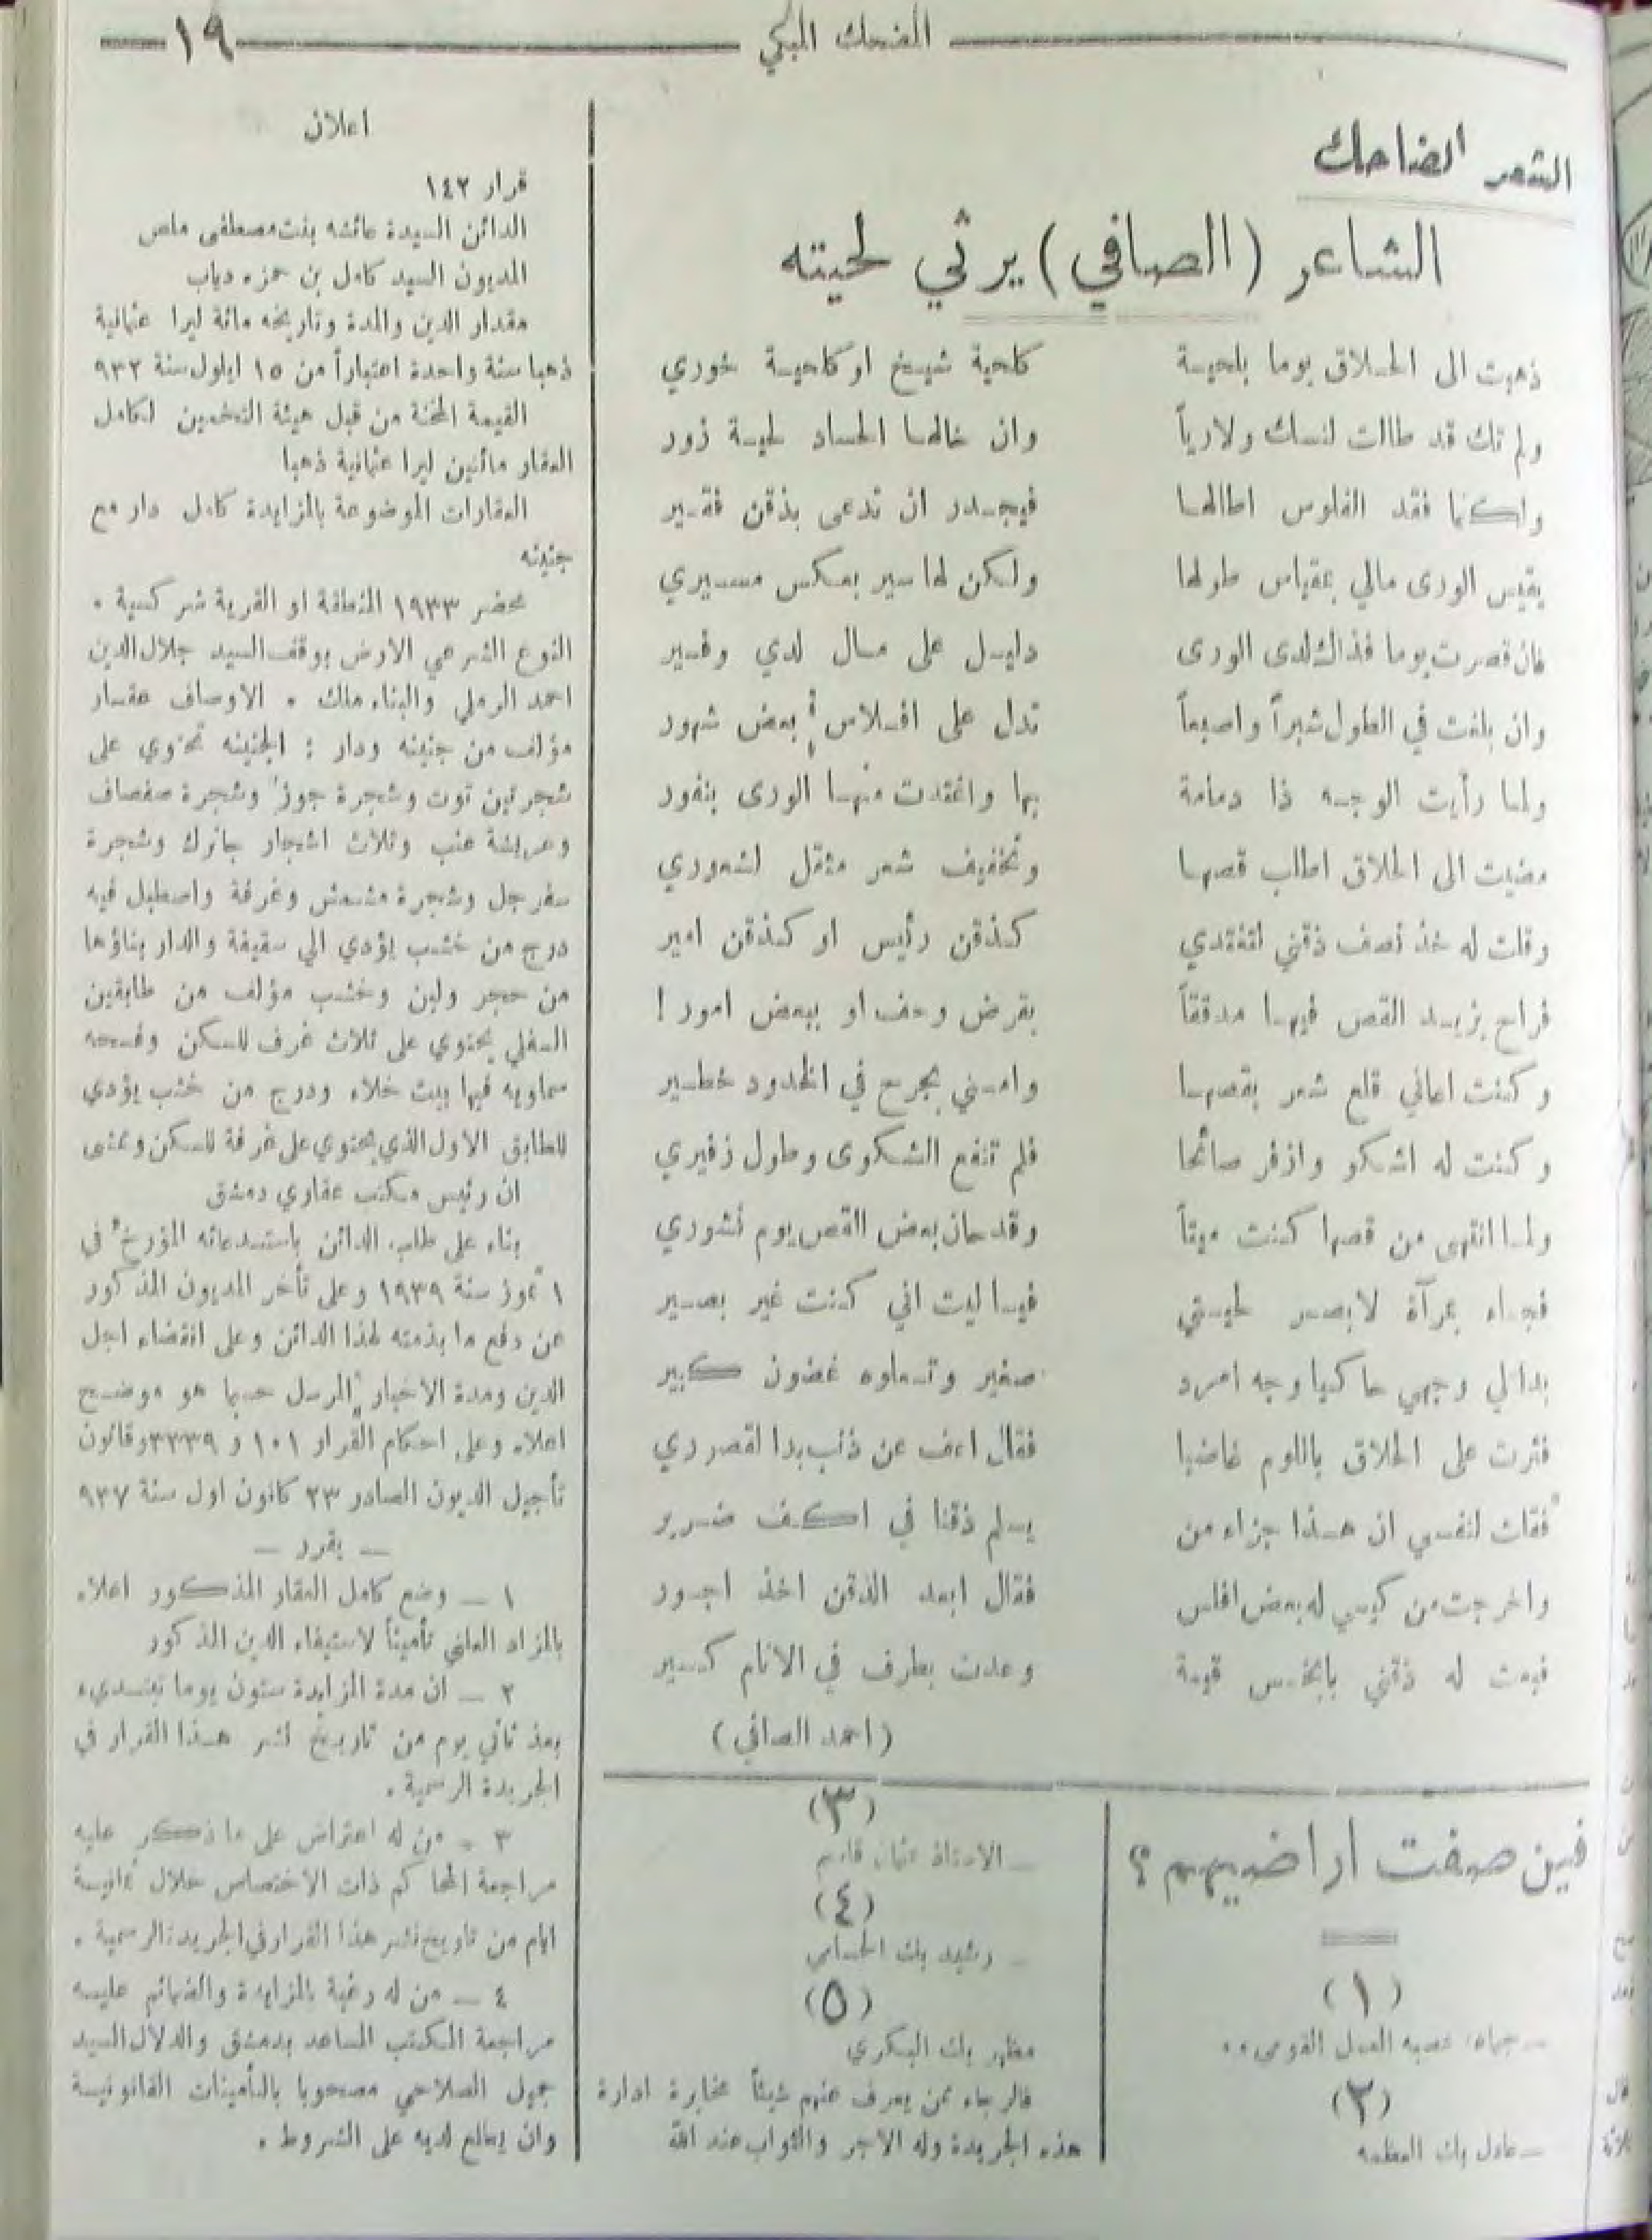 ١٩
المضحك المبكي
الشعر الضاحك
الشاعر (الصافي) يرثي لحيته
ذهبت الى الحلاق يوما بلحية كلحية شيخ او كلحية خوري
ولم تك قد طالت لنسك ولارياً وان خالها الحساد لحية زور
ولكنما فقد الفلوس اطالها فيجدر ان تدعى بذقن فقير
يقيس الورى مالي بمقياس طولها ولكن لها سير بعكس مسيري
فان قصرت يوما فذاك لدى الورى دليل على مال لدي وفير
وان بلغت في الطول شبراً واصبعاً تدل على افلاس بعض شهور
ولما رأيت الوجه ذا دمامة بها واغتدت منها الورى بنفور
مضيت الى الحلاق اطلب قصها وتخفيف شعر مثقل لشعوري
وقلت له خذ نصف ذقني لتغتدي كذقن رئيس او كذقن امير
فراح يزيد القص فيها مدققاً بقرض وحف او ببعض امور !
وكنت اعاني قلع شعر بقصها وامني بجرح في الخدود خطير
وكنت له اشكو وازفر صائحا فلم تنفع الشكوى وطول زفيري
ولما انتهى من قصها كنت ميتاً وقد حان بعض القص يوم نشوري
فجاء بمرآة لابصر لحيتي فيا ليت اني كنت غير بصير
بدا لي وجهي حاكيا وجه امرد صغير وتعلوه غضون كبير
فثرت على الحلاق باللوم غاضبا فقال اعف عن ذنب بدا لقصوري
فقلت لنفسي ان هذا جزاء من يسلم ذقنا في اكف ضرير
واخرجت من كيسي له بعض افلس فقال ابعد الذقن اخذ اجور
فبعت له ذقني بابخس قيمة وعدت بطرف في الانام كسير
(احمد الصافي)
فين صفت اراضيهم ؟
(١)
ـ جماعة عصبه العمل القومي ..
(٢)
ـ عادل بك العظمه
(٣)
ـ الاستاذ عثمان قاسم
(٤)
ـ رشيد بك الحسامي
(٥)
مظهر بك البكري
فالرجاء ممن يعرف عنهم شيئاً مخابرة ادارة
هذه الجريدة وله الاجر والثواب عند الله
اعلان
قرار ١٤٢
الدائن السيدة عائشه بنت مصطفى ملص
المديون السيد كامل بن حمزه دياب
مقدار الدين والمدة وتاريخه مائة ليرا عثمانية
ذهبا سنة واحدة اعتباراً من ١٥ ايلول سنة ٩٣٢
القيمة المخمنة من قبل هيئة التخمين لكامل
العقار مائتين ليرا عثمانية ذهبا
العقارات الموضوعة بالمزايدة كامل دار مع
جنينه
محضر ١٩٣٣ المنطقة او القرية شركسية .
النوع الشرعي الارض بوقف السيد جلال الدين
احمد الرملي والبناء ملك . الاوصاف عقار
مؤلف من جنينه ودار : الجنينه تحتوي على
شجرتين توت وشجرة جوز وشجرة صفصاف
وعريشة عنب وثلاث اشجار جانرك وشجرة
سفرجل وشجرة مشمش وغرفة واصطبل فيه
درج من خشب يؤدي الي سقيفة والدار بناؤها
من حجر ولبن وخشب مؤلف من طابقين
السفلي يحتوي على ثلاث غرف للسكن وفسحه
سماويه فيها بيت خلاء ودرج من خشب يؤدي
للطابق الاول الذي يحتوي على غرفة للسكن وممشى
ان رئيس مكتب عقاري دمشق
بناء على طلب الدائن باستدعائه المؤرخ في
١ تموز سنة ١٩٣٩ وعلى تأخر المديون المذكور
عن دفع ما بذمته لهذا الدائن وعلى انقضاء اجل
الدين ومدة الاخبار المرسل حسبما هو موضح
اعلاه وعلى احكام القرار ١٠١ و ٣٣٣٩ وقانون
تأجيل الديون الصادر ٢٣ كانون اول سنة ٩٣٧
ـ يقرر ـ
١ ـ وضع كامل العقار المذكور اعلاه
بالمزاد العلني تأميناً لاستيفاء الدين المذكور
٢ ـ ان مدة المزايدة ستون يوما تبتديء
بعد ثاني يوم من تاريخ نشر هذا القرار في
الجريدة الرسمية .
٣ ـ من له اعتراض على ما ذكر عليه
مراجعة المحاكم ذات الاختصاص خلال ثمانية
ايام من تاريخ نشر هذا القرار في الجريدة الرسمية .
٤ ـ من له رغبة بالمزايدة والضمائم عليه
مراجعة المكتب المساعد بدمشق والدلال السيد
جميل الصلاحي مصحوبا بالتأمينات القانونية
وان يطلع لديه على الشروط .